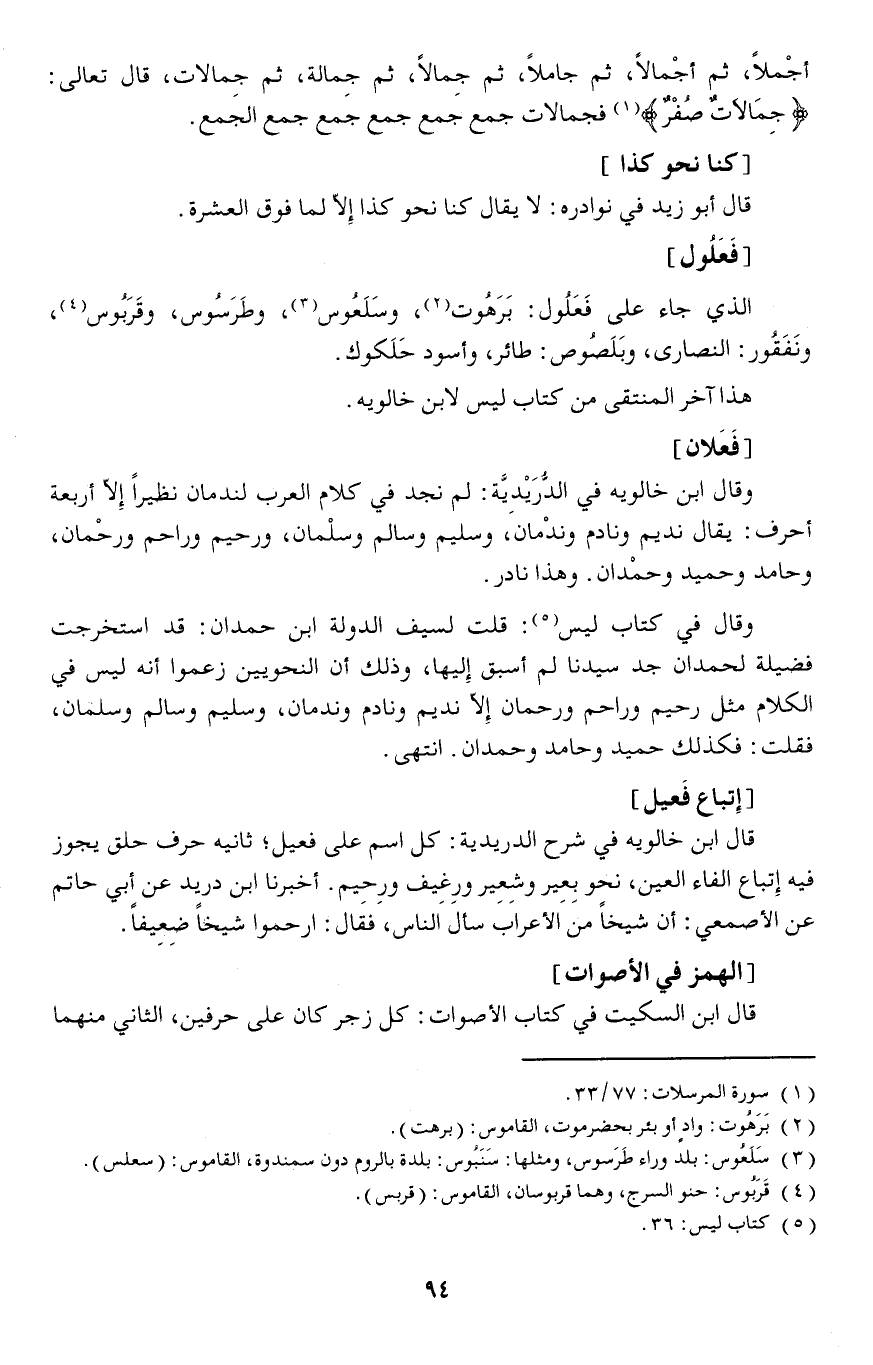 أجْملاً، ثم أجْمالاً، ثم جاملاً، ثم جِمالاً، ثم جِمالة، ثم جِمالات، قال تعالى:
﴿جِمَالاَتٌ صُفْرٌ﴾(١) فجمالات جمع جمع جمع جمع جمع الجمع.
[كنا نحو كذا]
قال أبو زيد في نوادره: لا يقال كنا نحو كذا إلاّ لما فوق العشرة.
[فَعَلُول]
الذي جاء على فَعَلُول: بَرَهُوت(٢)، وسَلَعُوس(٣)، وطَرَسُوس، وقَرَبُوس(٤)،
ونَفَقُور: النصارى، وبَلَصُوص: طائر، وأسود حَلَكوك.
هذا آخر المنتقى من كتاب ليس لابن خالويه.
[فَعَلان]
وقال ابن خالويه في الدُّرَيْدِيَّة: لم نجد في كلام العرب لندمان نظيراً إلاّ أربعة
أحرف: يقال نديم ونادم وندْمان، وسليم وسالم وسلْمان، ورحيم وراحم ورحْمان،
وحامد وحميد وحمْدان. وهذا نادر.
وقال في كتاب ليس(٥): قلت لسيف الدولة ابن حمدان: قد استخرجت
فضيلة لحمدان جد سيدنا لم أسبق إليها، وذلك أن النحويين زعموا أنه ليس في
الكلام مثل رحيم وراحم ورحمان إلاّ نديم ونادم وندمان، وسليم وسالم وسلمان،
فقلت: فكذلك حميد وحامد وحمدان. انتهى.
[إتباع فَعيل]
قال ابن خالويه في شرح الدريدية: كل اسم على فعيل؛ ثانيه حرف حلق يجوز
فيه إتباع الفاء العين، نحو بِعِير وشِعِير ورِغِيف ورِحِيم. أخبرنا ابن دريد عن أبي حاتم
عن الأصمعي: أن شيخاً من الأعراب سأل الناس، فقال: ارحموا شيخاً ضِعِيفاً.
[الهمز في الأصوات]
قال ابن السكيت في كتاب الأصوات: كل زجر كان على حرفين، الثاني منهما
(١) سورة المرسلات: ٣٣/٧٧.
(٢) بَرَهُوت: وادٍ أو بئر بحضرموت، القاموس: (برهت).
(٣) سَلَعُوس: بلد وراء طَرَسوس، ومثلها: سَنَبُوس: بلدة بالروم دون سمندوة، القاموس: (سعلس).
(٤) قَرَبُوس: حنو السرج، وهما قربوسان، القاموس: (قربس).
(٥) كتاب ليس: ٣٦.
٩٤